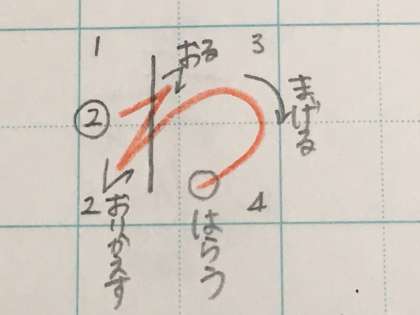 1
3
おる
②
わ
まげる
2
おりかえす
はらう
4